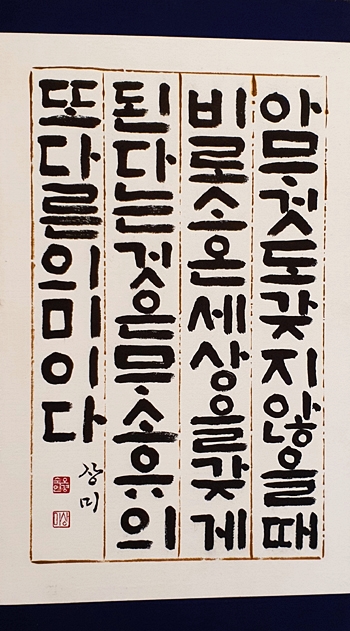 아무것도갖지않을때
비로소온세상을갖게
된다는것은무소유의
또다른의미이다
장미